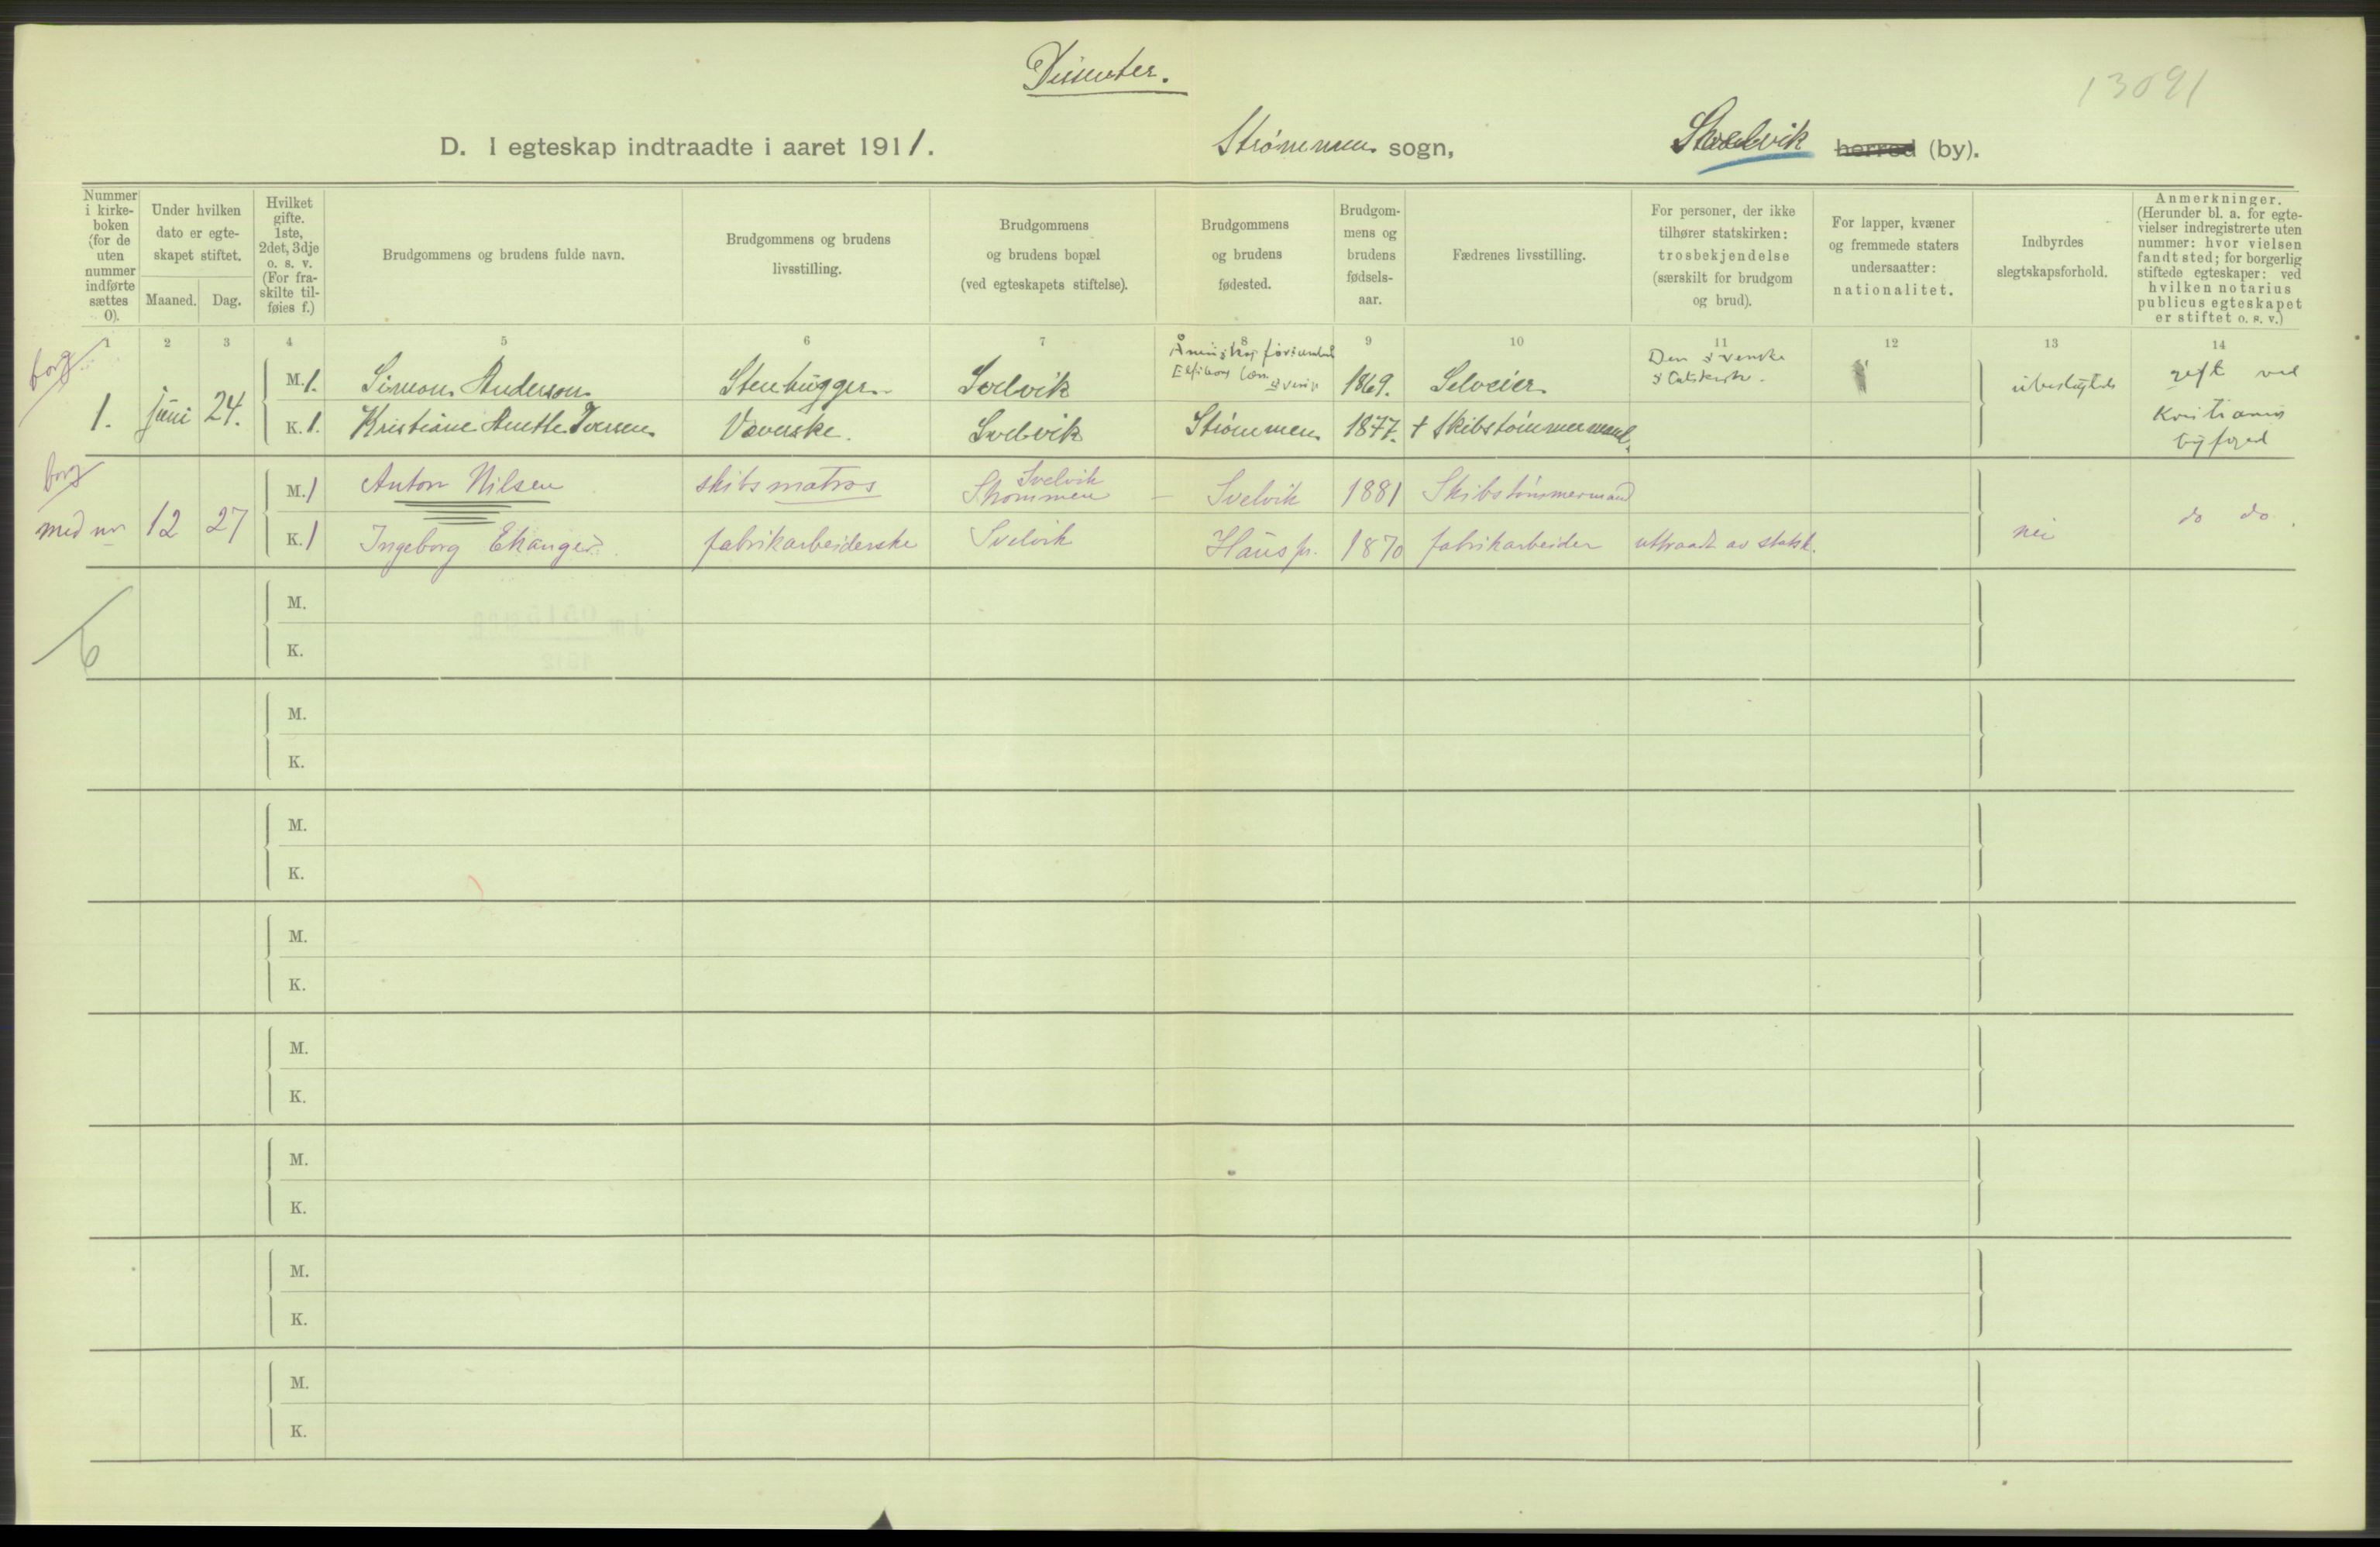 Dissenter.
13091
D. I egteskap indtraadte i aaret 1911. Strømmen sogn, Svelvik herred (by).
Nummer i kirkeboken (for de uten nummer indførte sættes 0).
Under hvilken dato er egteskapet stiftet.
Maaned. Dag.
Hvilket gifte. 1ste, 2det, 3dje o. s. v. (For fraskilte tilføies f.)
Brudgommens og brudens fulde navn.
Brudgommens og brudens livsstilling.
Brudgommens og brudens bopæl (ved egteskapets stiftelse).
Brudgommens og brudens fødested.
Brudgommens og brudens fødselsaar.
Fædrenes livsstilling.
For personer, der ikke tilhører statskirken: trosbekjendelse (særskilt for brudgom og brud).
For lapper, kvæner og fremmede staters undersaatter: nationalitet.
Indbyrdes slegtskapsforhold.
Anmerkninger. (Herunder bl. a. for egtevielser indregistrerte uten nummer: hvor vielsen fandt sted; for borgerlig stiftede egteskaper: ved hvilken notarius publicus egteskapet er stiftet o. s. v.)
1 2 3 4 5 6 7 8 9 10 11 12 13 14
borg
1. juni 24.
M. 1. Simon Anderson Stenhugger Svelvik 1869. Selveier Den svenske statskirke. ubeslegtede gift ved
K. 1. Kristiane Anette Iversen Væverske. Svelvik Strømmen 1877. † Skibstømmermand. Kristiania byfoged
borg
med nr 12 27
M. 1 Anton Nilsen skibsmatros Svelvik Strømmen – Svelvik 1881 Skibstømmermand
K. 1 Ingeborg Ekanger fabrikarbeiderske Svelvik Haus pr. 1870 fabrikarbeider uttraadt av statsk. nei do do.
6
M.
K.
M.
K.
M.
K.
M.
K.
M.
K.
M.
K.
M.
K.
M.
K.